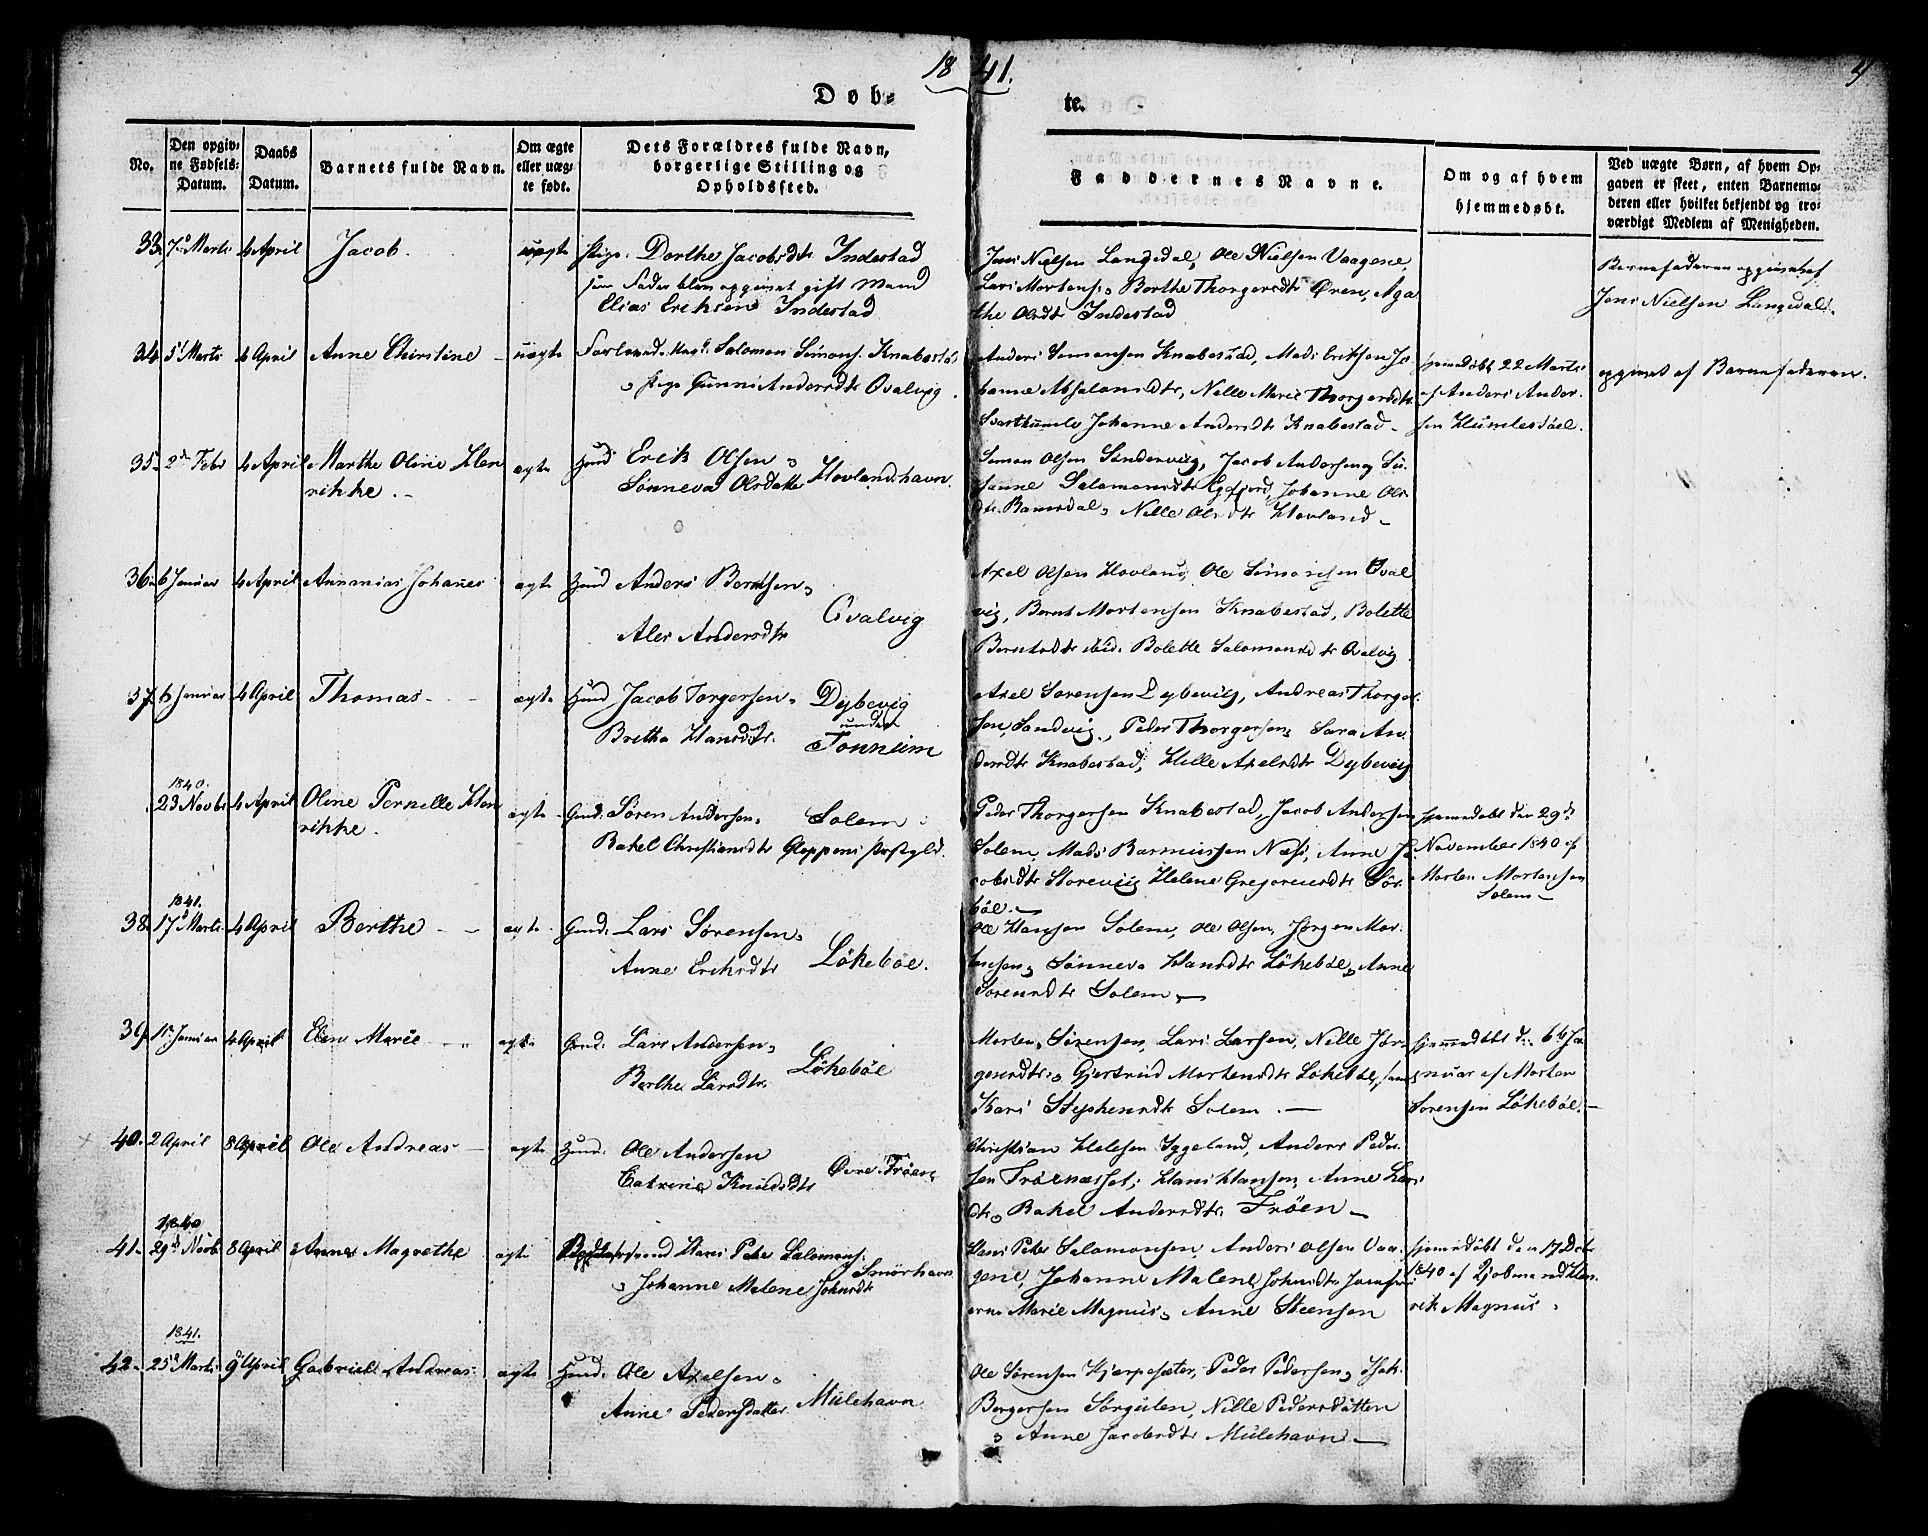 1841.
Døb-
te.
No.
Den opgiv-
ne Fødsels-
Datum.
Daabs
Datum.
Barnets fulde Navn.
Om ægte
eller uæg-
te født.
Dets Forældres fulde Navn,
borgerlige Stilling og
Opholdssted.
Faddernes Navne.
Om og af hvem
hjemmedøbt.
Ved uægte Børn, af hvem Op-
gaven er skeet, enten Barnemo-
deren eller hvilket bekjendt og tro-
værdigt Medlem af Menigheden.
33. 7de Marts 4 April Jacob. uægte Pige. Dorthe Jacobsdtr Indestad
som Fader blev opgivet gift Mand
Elias Eriksen Indestad
Jens Nielsen Langedal, Ole Nielsen Vaagene,
Lars Mortens. Berthe Thorgersdtr Øren, Aga
the Olsdtr Indestad
Barnefaderen opgivet af
Jens Nielsen Langedal.
34. 5te Marts 4 April Anne Christine uægte Salomon Simons. Knabestad
Pige Gunni Andersdtr Qvalvig.
Anders Simonsen Knabestad, Mads Eriksen Jo
hanne Absalonsdtr, Nille Marie Thorgersdtr
Svarthumle Johanne Andersdtr Knabestad
hjemmedøbt 22 Marts
af Anders Ander
sen Humlesøel.
opgivet af Barnefaderen.
35. 2de Febr 4 April Marthe Oline Hen
rikke. ægte Huusmd Erik Olsen
Sønneva Olsdatter Hovlandshavn.
Simon Olsen Sandervig, Jacob Andersen, Su
sanne Salomonsdtr Egefjord, Johanne Ols
dtr. Ramsdal, Nille Olsdtr Hovland
36. 6 Januar 4 April Annanias Johanes ægte Huusmd Anders Berntsen
Ales Andersdtr Qvalvig
Axel Olsen Hovland, Ole Simonsen Qval
vig, Bernt Mortensen Knabestad, Bolette
Berntsdtr ibid. Bolette Salomonsdtr Qvalvig
37. 6 Januar 4 April Thomas ægte Huusmd Jacob Torgersen
Bretha Hansdtr. Dybevig
under
Tonheim
Axel Sørensen Dybevig, Andreas Thorger
sen, Sandvig, Peder Thorgersen, Sara An
dersdtr Knabestad, Helle Axelsdtr Dybevig
1840.
23 Novbr 4 April Oline Pernelle Hen
rikke. ægte Gmd. Søren Andersen. Solem
Rakel Christiansdtr Gloppens Præstgld.
Peder Thorgersen Knabestad, Jacob Andersen
Solem, Mads Rasmussen Næss, Anne Ja
cobsdtr Storevig Helene Gregoriusdtr Sør
bøe.
hjemmedøbt den 29de
November 1840 af
Morten Mortensen
Solem
1841.
38. 17de Marts 4 April Berthe ægte Gmd. Lars Sørensen
Anne Eriksdtr Løkebøe.
Ole Hansen Solem, Ole Olsen, Jørgen Mor
tensen, Sønneva Hansdtr Løkebøe, Anne
Sørensdtr Solem
39. 1ste Januar 4 April Elen Marie ægte Gmd. Lars Andersen
Berthe Larsdtr. Løkebøe
Morten Sørensen, Lars Larsen, Nille Jør
gensdtr, Gjertrud Mortensdtr Løkebøe, samt
Kari Stephensdtr Solem.
hjemmedøbt d. 6te Ja
nuar af Morten
Sørensen Løkebøe.
40. 2 April 8 April Ole Andreas ægte Huusmd. Ole Andersen
Catrine Knudsdtr Øvre Frøen
Christian Helesen Iggeland, Anders Peder
sen Frøenæsset, Hans Hansen, Anne Lars
dtr, Rakel Andersdtr. Frøen
1840
41. 29de Novb. 8 April Annes Magrethe ægte Hans Peter Salomons.
Smørhavn
Johanne Malene Johnsdtr
Hans Peter Salomonsen, Anders Olsen Vaa
gene, Johanne Malene Johnsdtr
Marie Magnus, Anne Steensen
hjemmedøbt den 17 Dcbr
1840 af Hen
rik Magnus.
1841.
42. 25de Marts 9 April Gabriel Andreas. ægte Huusmd. Ole Axelsen
Anne Pedersdatter Mulehavn
Ole Sørensen Hjerpesæter, Peder Pedersen, Isak
Børgersen Sørgulen, Nille Pedersdatter
Anne Jacobsdtr Mulehavn